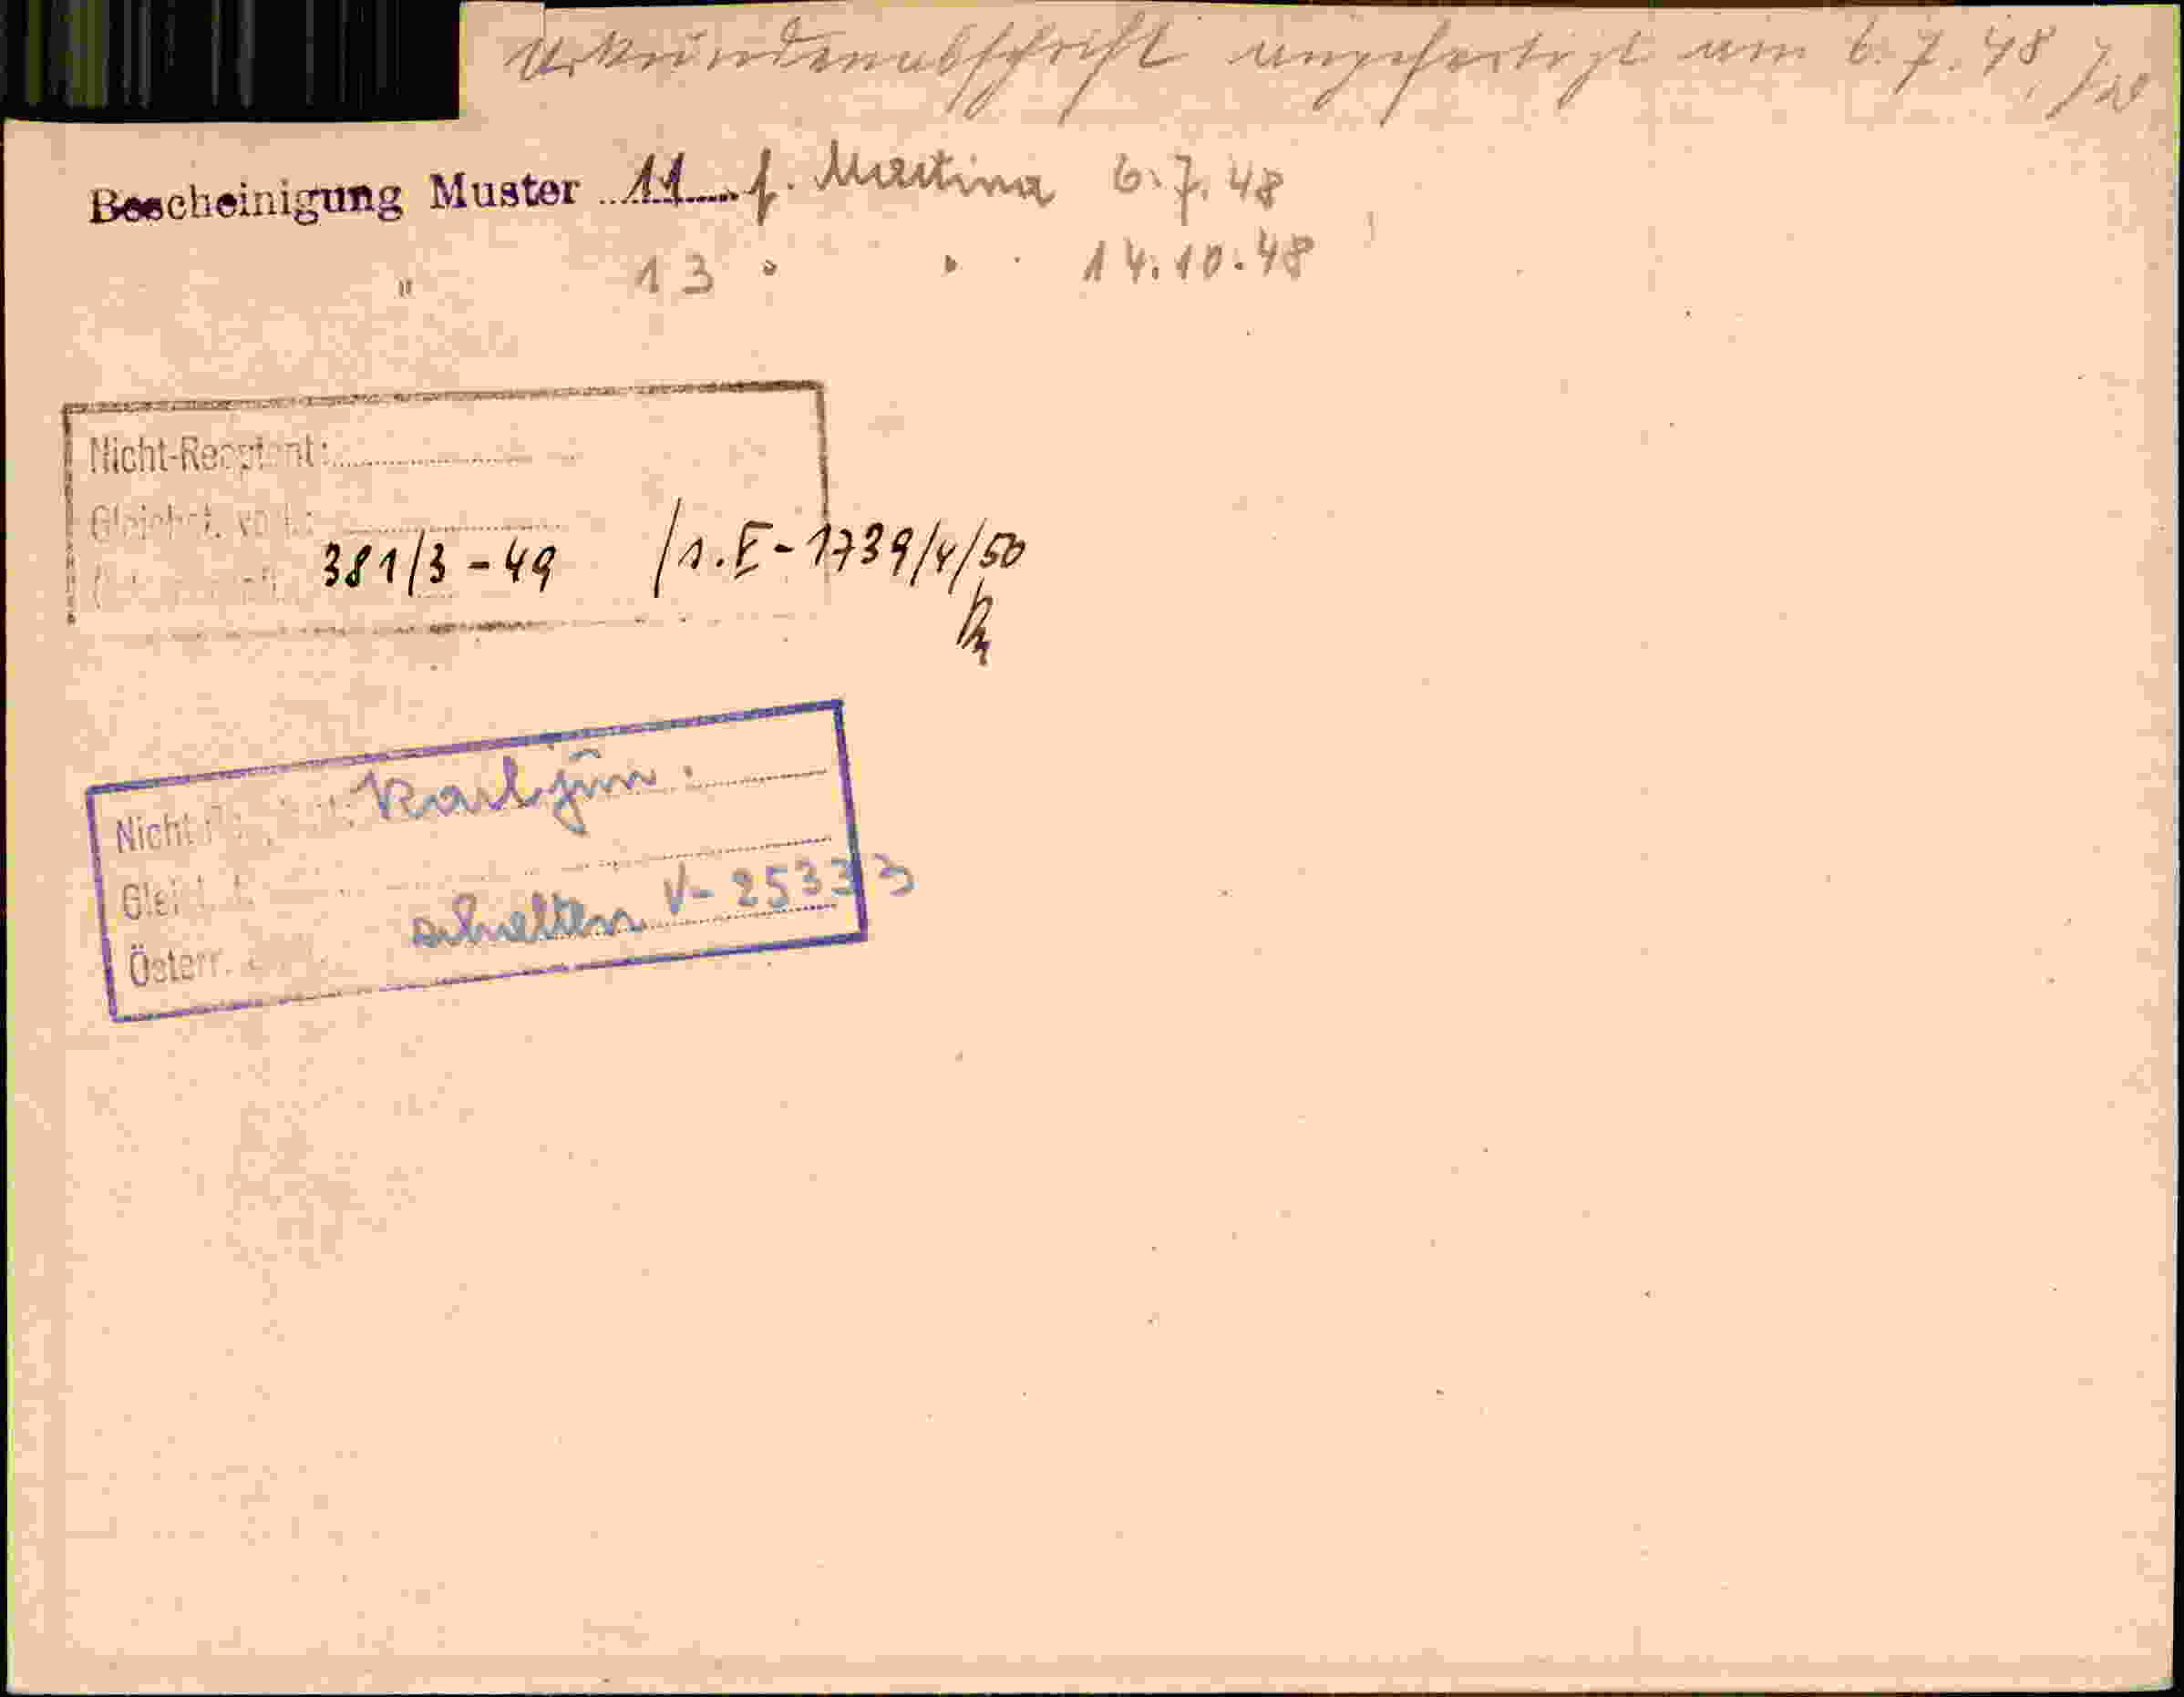 Urkundenabschrift angefertigt am 6.7.48
Bescheinigung Muster 11 f. Martina 6.7.48
" 13 " " 14.10.48
Nicht-Reoptant:
381/3-49 /1.E-1739/4/50
Nicht Karl jun.
erhalten V-25333
Österr.